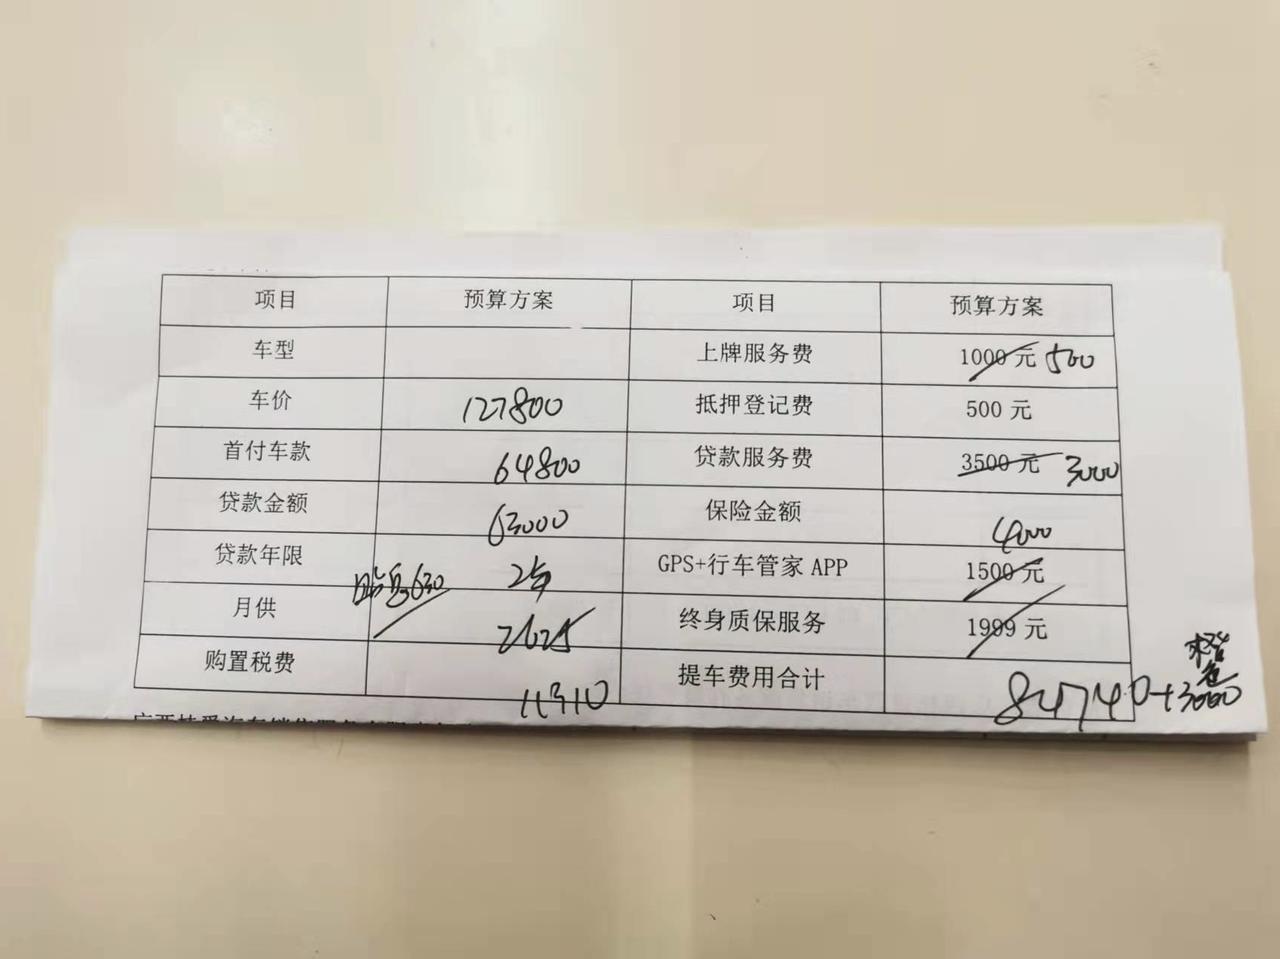 项目 预算方案 项目 预算方案
车型 上牌服务费 1000元 500
车价 127800 抵押登记费 500元
首付车款 64800 贷款服务费 3500元 3000
贷款金额 63000 保险金额 4000
贷款年限 2年 GPS+行车管家APP 1500元
贴息630
月供 2625 终身质保服务 1999元
购置税费 11310 提车费用合计 84740+3000
橙色